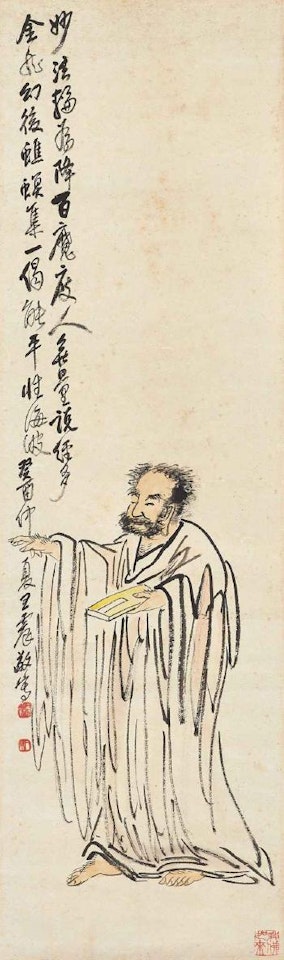 妙法輪為降百魔度人無量說經多
金幻後蟭螟集一偈能平性海波癸酉仲夏王震敬寫